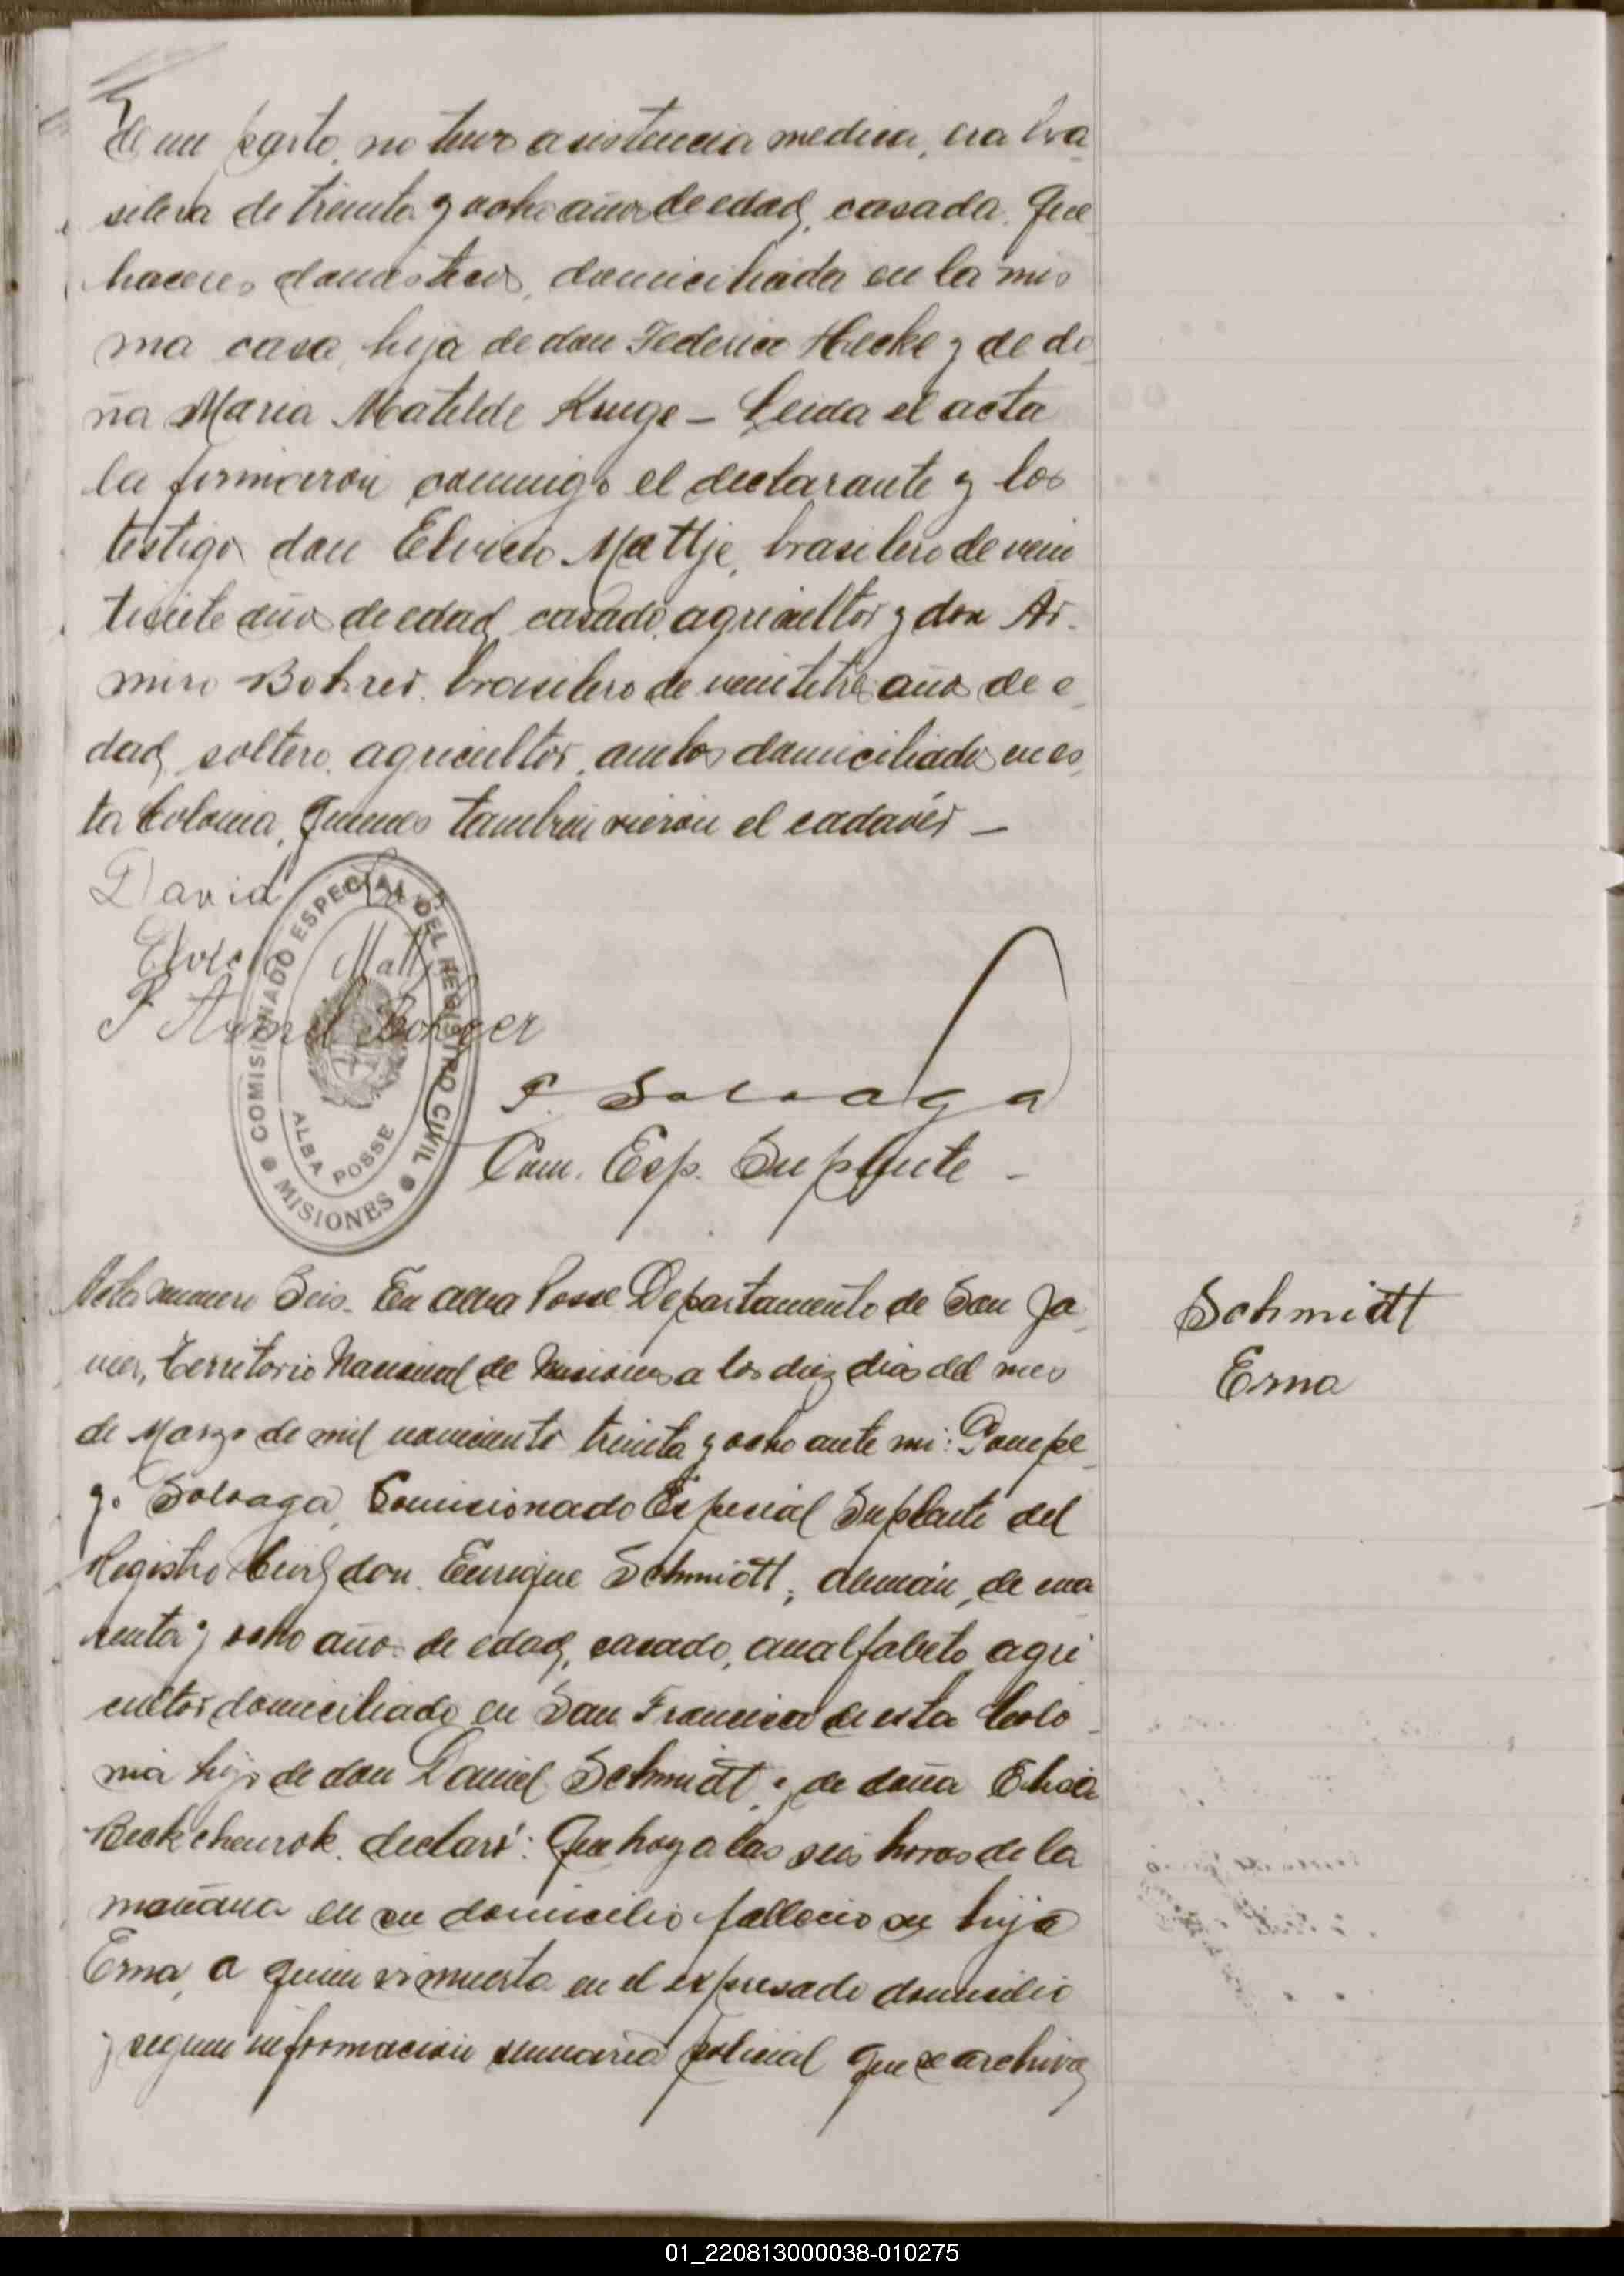 de un parto, no tuvo asistencia medica, era bra
silera de treinta y ocho años de edad, casada, que
haceres domesticos, domiciliada en la mis
ma casa, hija de don Federico Hecke y de do
ña Maria Matilde Kruge – Leida el acta
la firmaron conmigo el declarante y los
testigos don Elvicio Mattje, brasilero de vein
tisiete años de edad casado, agricultor y don Ar-
miro Bohrer, brasilero de veintitres años de e
dad, soltero, agricultor, ambos domiciliados en es
ta Colonia, quienes tambien vieron el cadavér –
David
Mattje
Bohrer
COMISIONADO ESPECIAL DEL REGISTRO CIVIL
ALBA POSSE
MISIONES
P. Solvaga
Com. Esp. Suplente –
Acta numero Seis. En Alba Posse Departamento de San Ja
vier, Territorio Nacional de Misiones a los diez dias del mes
de Marzo de mil noveciento treinta y ocho ante mi: Pompe
yo Solvaga, Comisionado Especial Suplente del
Registro Civil, don Enrique Schmidt, alemán, de cua
renta y ocho años de edad, casado, analfabeto, agri
cultor domiciliado en San Francisco de esta Colo
nia hijo de don Daniel Schmidt y de doña
declaró: Que hoy a las seis horas de la
mañana en su domicilio fallecio su hija
Erna, a quien vi muerta en el expresado domicilio
y segun informacion sumaria policial que se archiva
Schmidt
Erna
01_220813000038-010275